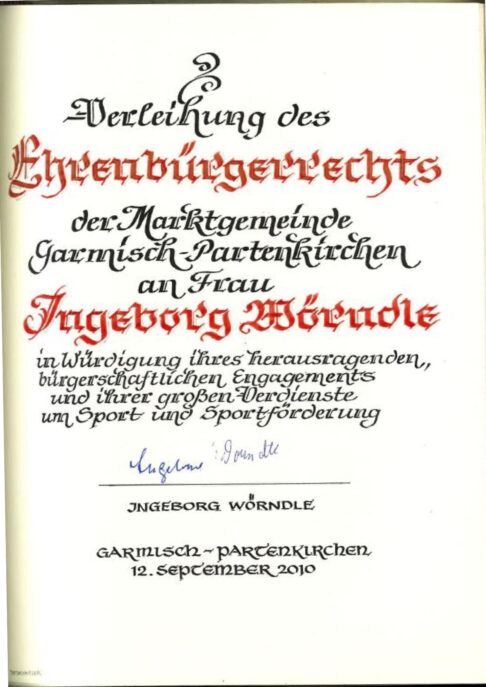 Verleihung des
Ehrenbürgerrechts
der Marktgemeinde
Garmisch-Partenkirchen
an Frau
Ingeborg Wörndle
in Würdigung ihres herausragenden,
bürgerschaftlichen Engagements
und ihrer großen Verdienste
um Sport und Sportförderung
Ingeborg Wörndle
INGEBORG WÖRNDLE
GARMISCH-PARTENKIRCHEN
12. SEPTEMBER 2010